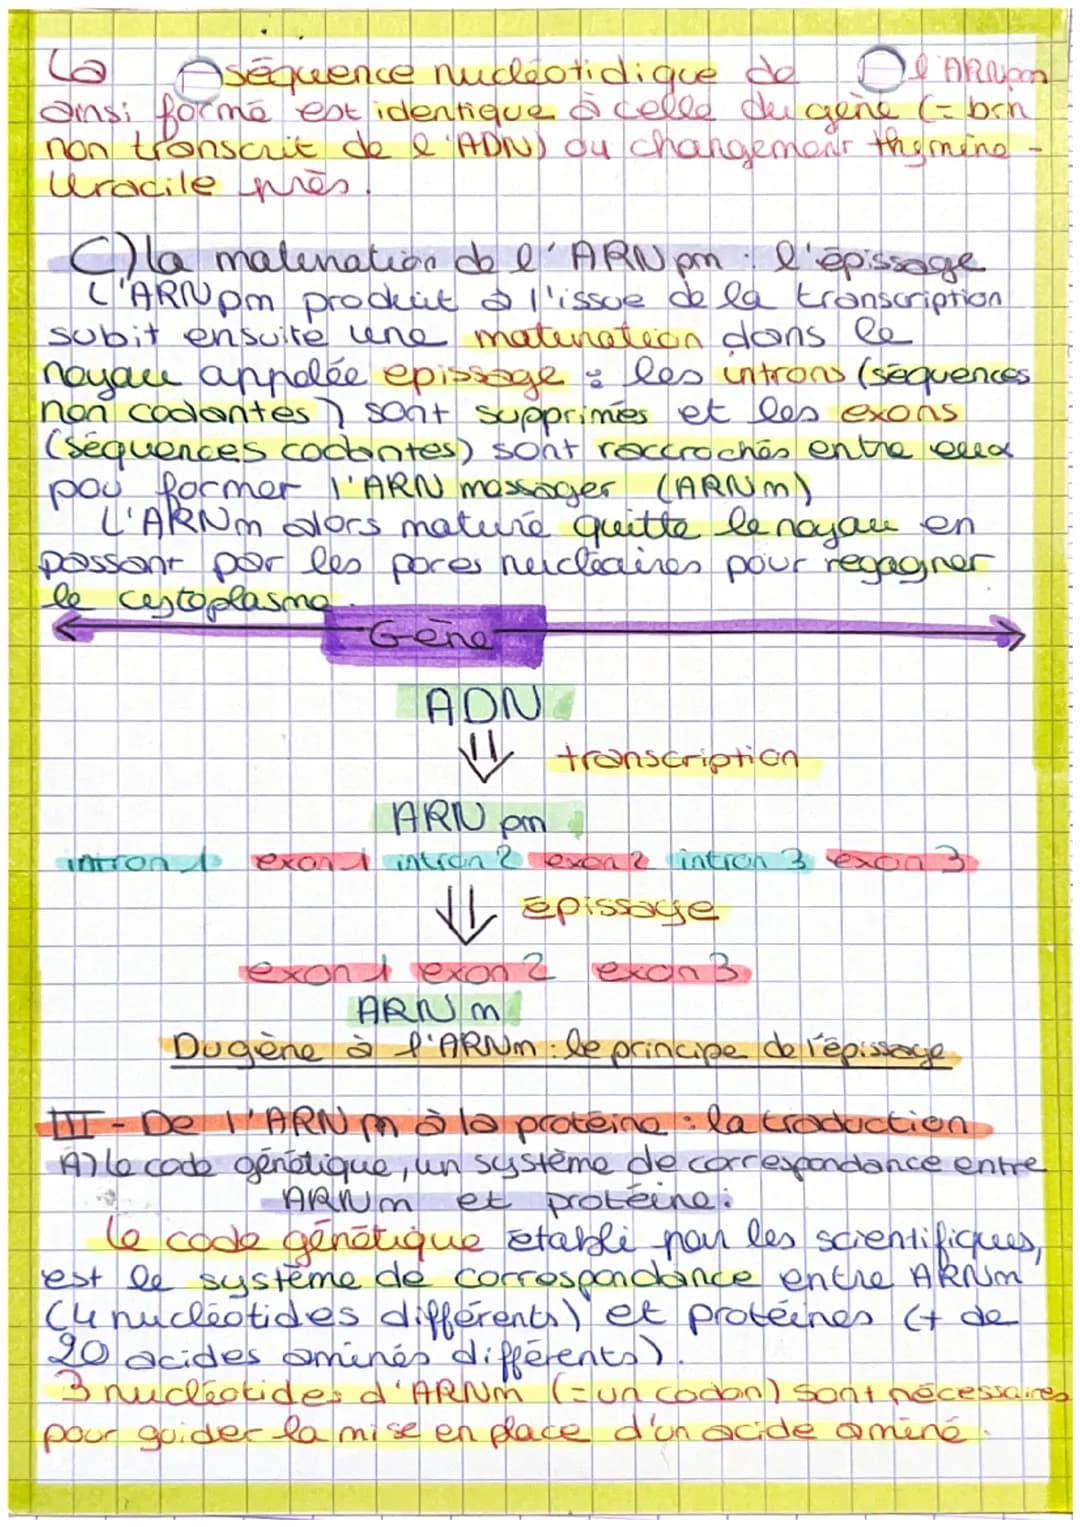 La séquence nucléotidique de l'ARNpm
ainsi formé est identique à celle du gène (= brin
non transcrit de l'ADN) au changement thymine -
uracile près.
C) la maturation de l'ARN pm : l'épissage
L'ARN pm produit à l'issue de la transcription
subit ensuite une maturation dans le
noyau appelée epissage : les introns (séquences
non codantes) sont supprimés et les exons
(séquences codantes) sont raccrochés entre eux
pou former l'ARN messager (ARNm)
L'ARNm alors mature quitte le noyau en
passant par les pores nucléaires pour regagner
le cytoplasme.
Gène
ADN
transcription
ARN pm
intron 1 exon 1 intron 2 exon 2 intron 3 exon 3
épissage
exon 1 exon 2 exon 3
ARN m
Du gène à l'ARNm : le principe de l'épissage
III - De l'ARN m à la protéine : la traduction
A) le code génétique, un système de correspondance entre
ARNm et protéine :
Le code génétique établi par les scientifiques,
est le système de correspondance entre ARNm
(4 nucléotides différents) et protéines (+ de
20 acides aminés différents).
3 nucléotides d'ARNm (= un codon) sont nécessaires
pour guider la mise en place d'un acide aminé.